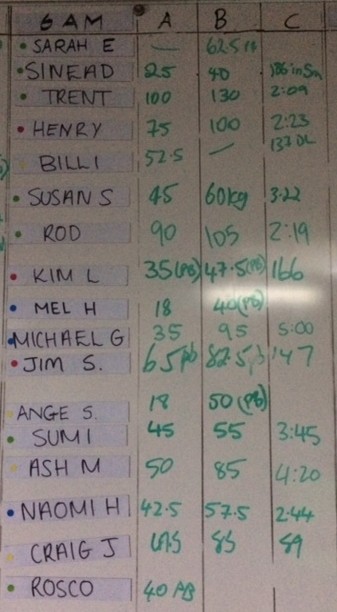 6 AM A B C
SARAH E — 62.5
SINEAD 25 40 186 in 5m
TRENT 100 130 2:09
HENRY 75 100 2:23
BILLI 52.5 — 137 DL
SUSAN S 45 60kg 3:22
ROD 90 105 2:19
KIM L 35(PB) 47.5(PB) 166
MEL H 18 40(PB)
MICHAEL G 35 95 5:00
JIM S. 65pb 82.5pb 147
ANGE S. 18 50(PB)
SUMI 45 55 3:45
ASH M 50 85 4:20
NAOMI H 42.5 57.5 2:44
CRAIG J 85 89
ROSCO 40